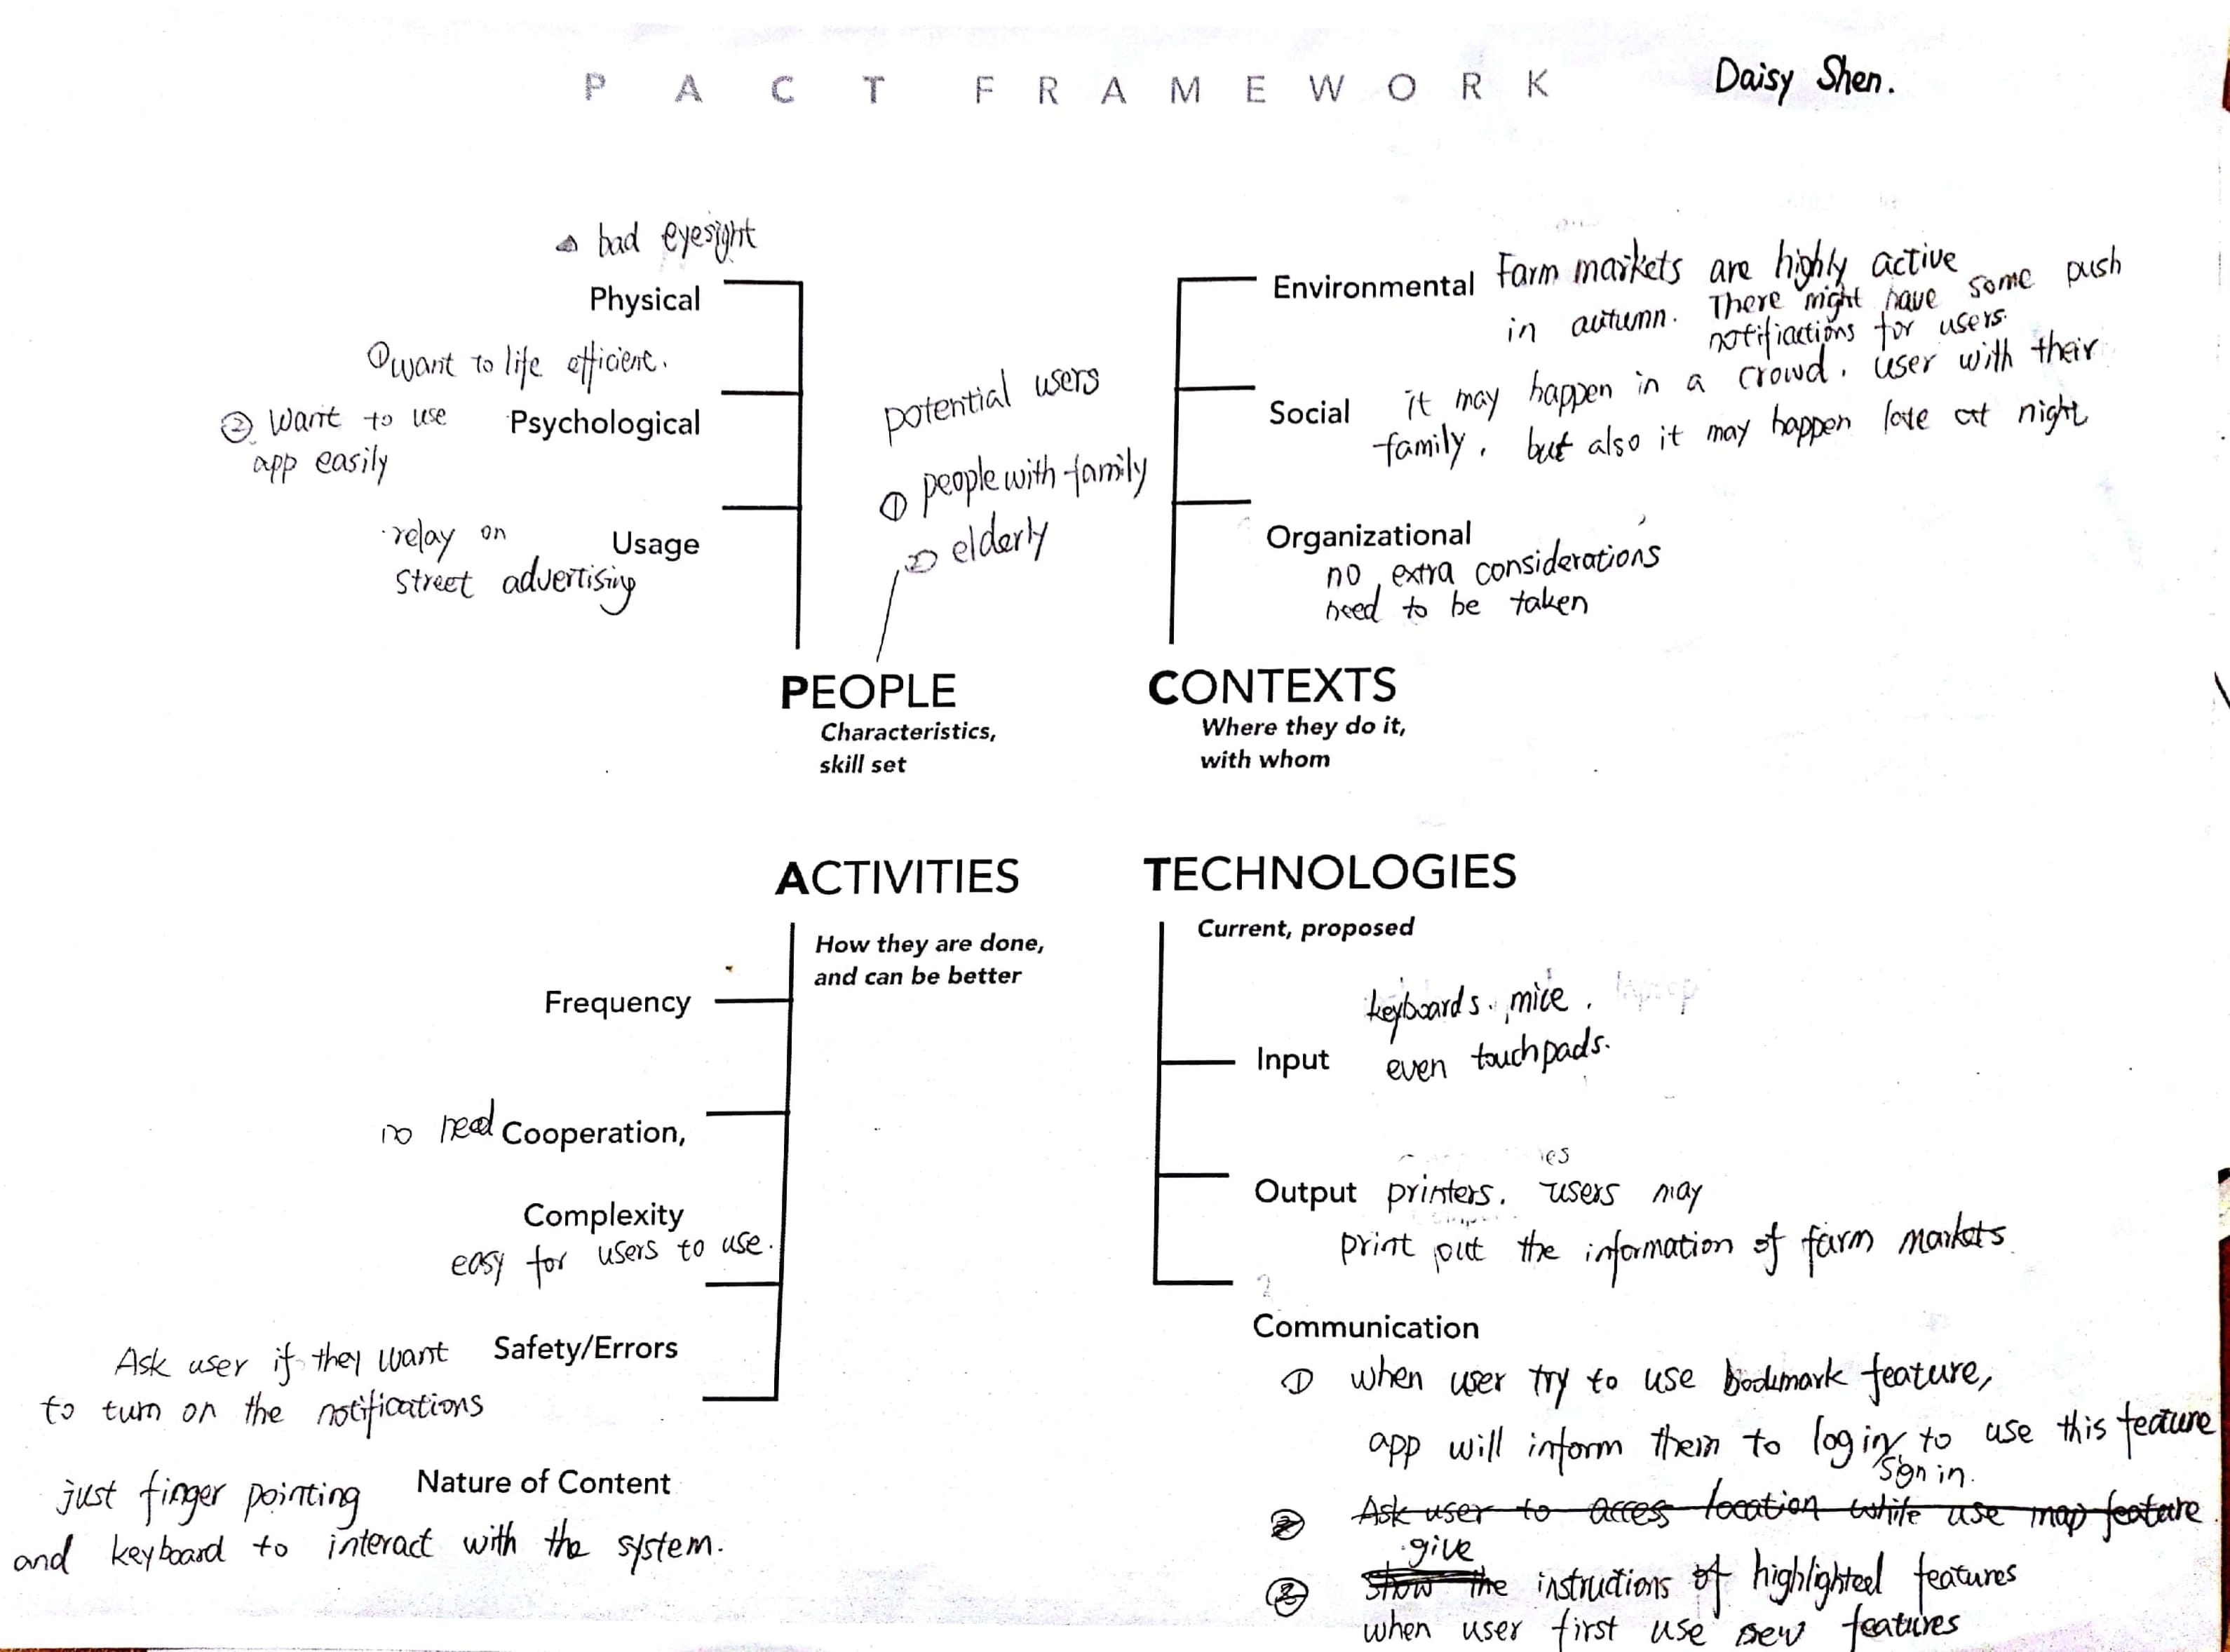 PACT FRAMEWORK
Daisy Shen.
bad eyesight
Physical
① want to life efficient.
② Want to use
app easily
Psychological
relay on
street advertising
Usage
potential users
① people with family
② elderly
PEOPLE
Characteristics,
skill set
Environmental
Farm markets are highly active
in autumn. There might have some push
notifiactions for users.
Social
it may happen in a crowd. user with their
family. but also it may happen late at night
Organizational
no extra considerations
need to be taken
CONTEXTS
Where they do it,
with whom
ACTIVITIES
How they are done,
and can be better
Frequency
no need
Cooperation,
Complexity
easy for users to use.
Safety/Errors
Ask user if they want
to turn on the notifications
Nature of Content
just finger pointing
and keyboard to interact with the system.
TECHNOLOGIES
Current, proposed
Input
keyboards. mice.
even touchpads.
Output
printers. users may
print out the information of farm markets
Communication
① when user try to use bookmark feature,
app will inform them to log in to use this feature
sign in.
② Ask user to access location while use map feature.
give
② show the instructions of highlighted features
when user first use new features